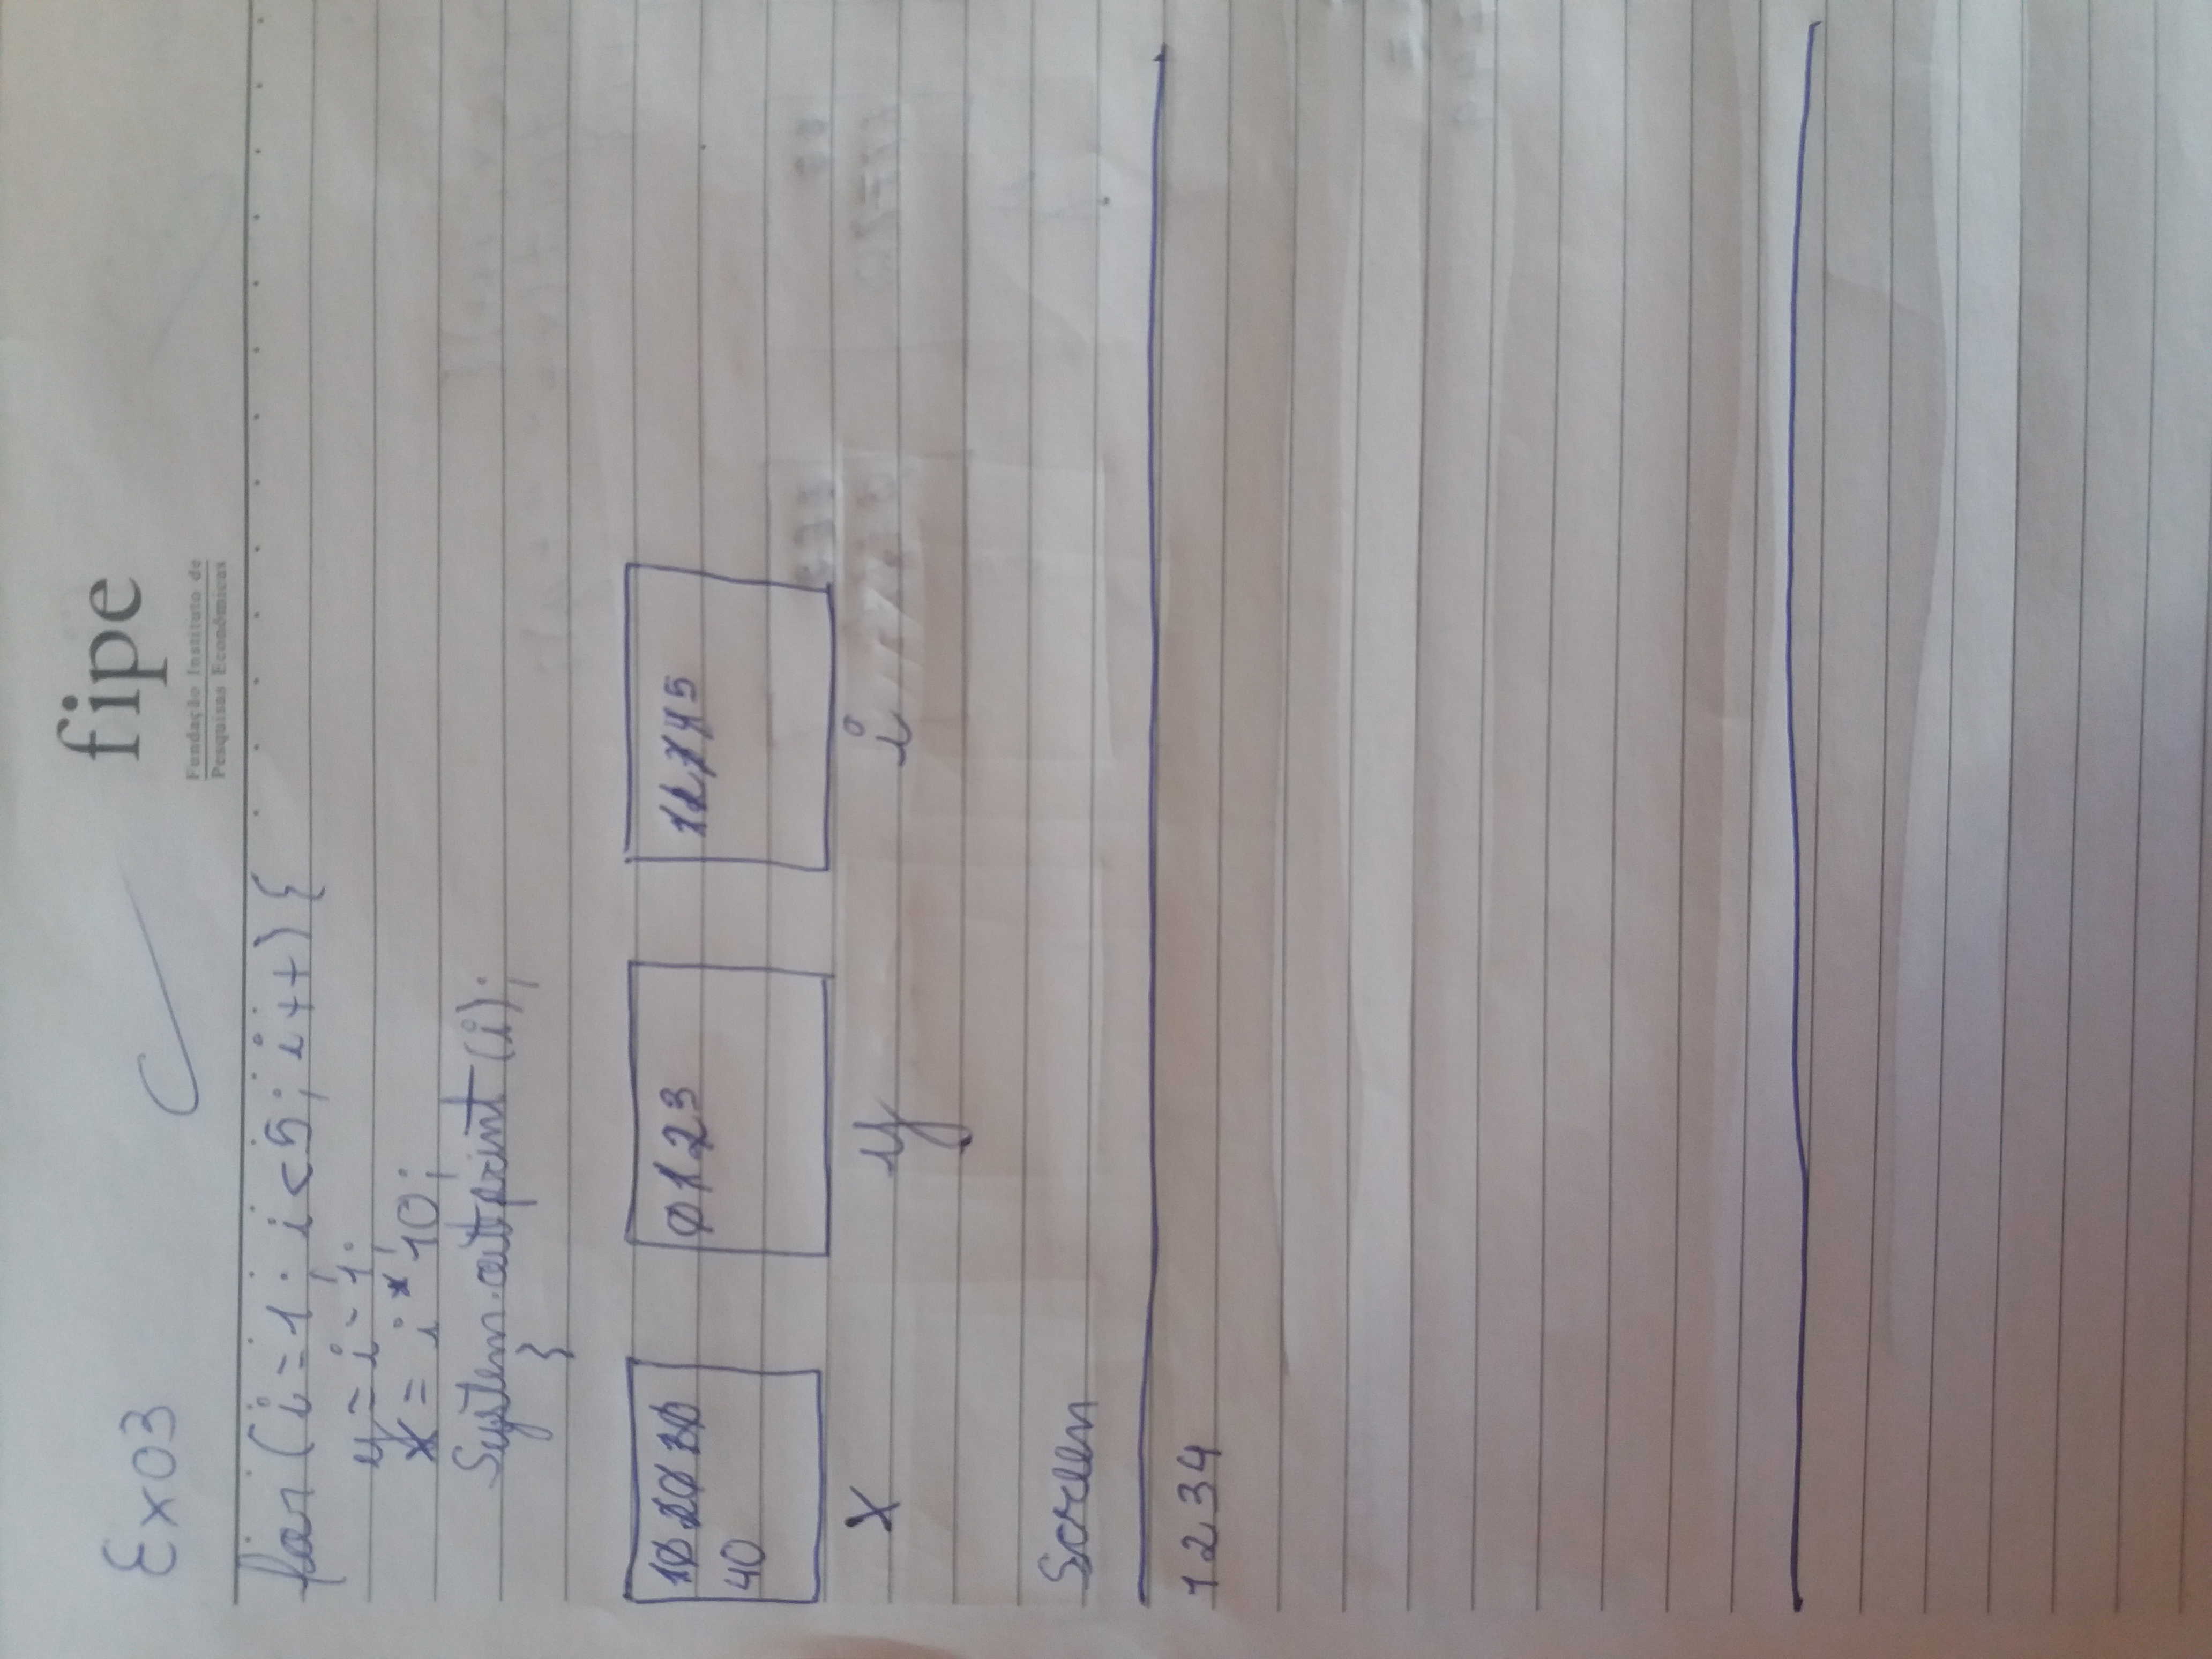 Ex03
fipe
Fundação Instituto de
Pesquisas Econômicas
for (i=1; i<5; i++) {
y = i - 1;
x = i * 10;
System.out print (i);
}
10 20 30
40
0 1 2 3
1 2 3 4 5
x
y
i
Screen
1 2 3 4